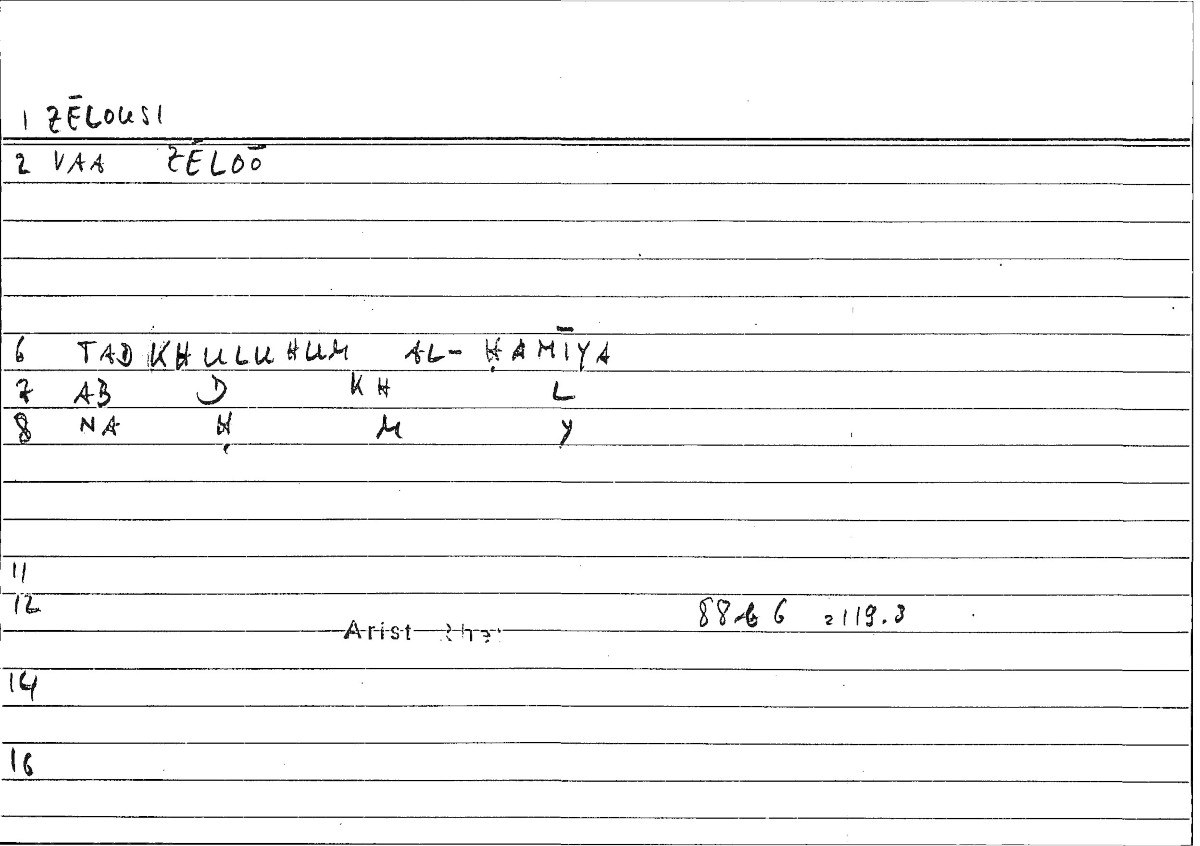 1 ZĒLOUSI
2 VAA ZĒLOŌ
6 TADKHULUHUM AL-ḤAMĪYA
7 AB D KH L
8 NA Ḥ M Y
11
12 88b6 =119.3
Arist Rhet
14
16